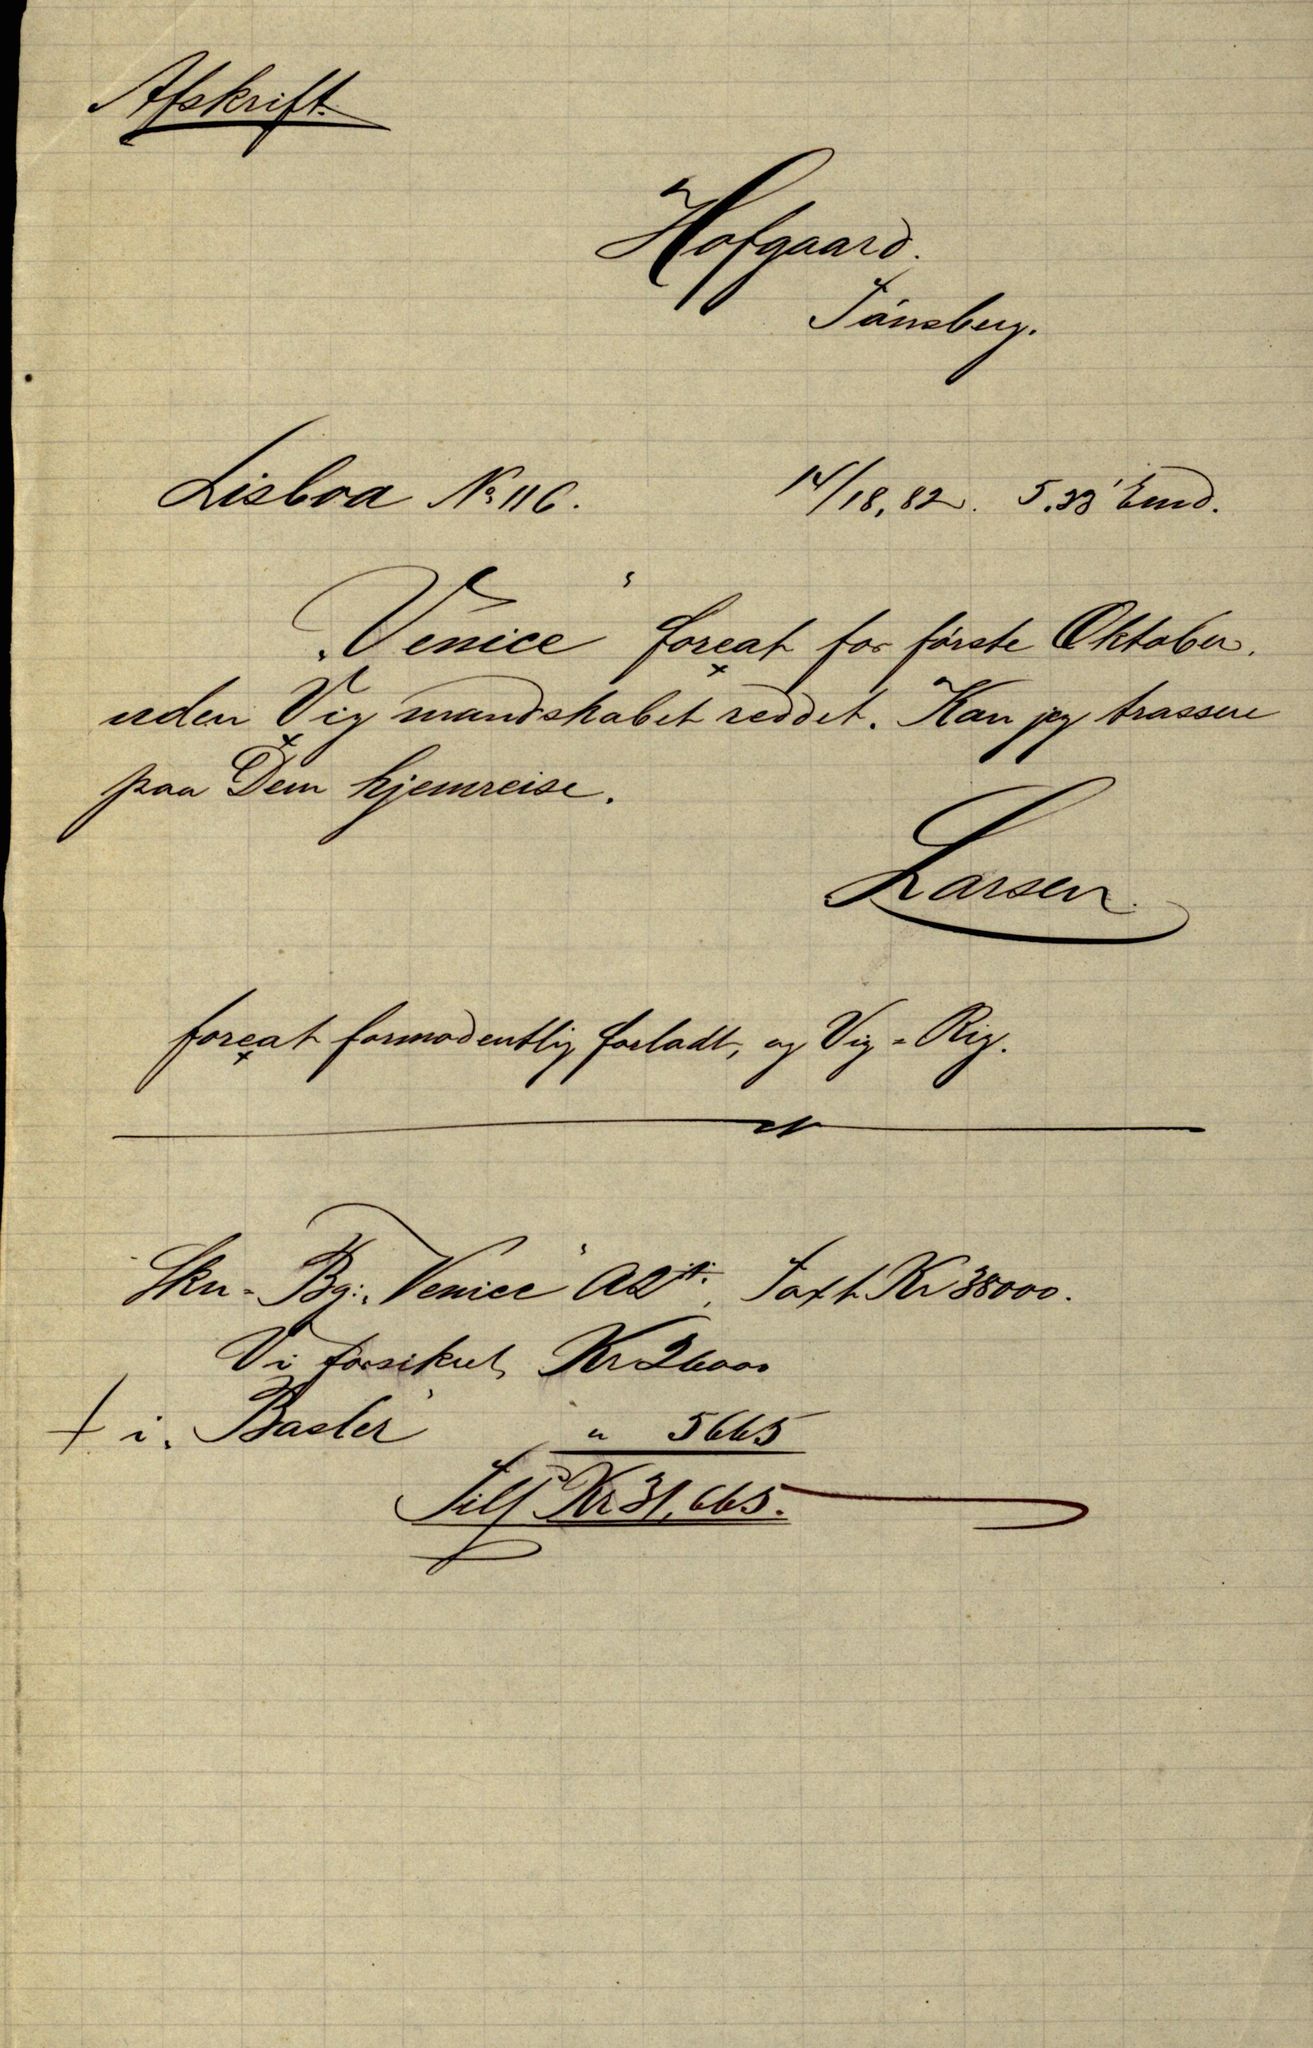 Afskrift.
Hofgaard.
Tönsberg.
Lisboa No 116. 14/18, 82. 5.33' Emd.
„Venice" foreat for förste Oktober.
uden Vig mandskabet reddet. Kan jeg trassere
paa Dem hjemreise.
Larsen.
foreat formodentlig forladt, og Vig = Rig.
Skn-Bg: „Venice" A2 Taxt. Kr 38000.
Vi forsikret Kr 26000
+ i „Basler" " 5665
Tils Kr 31,665.